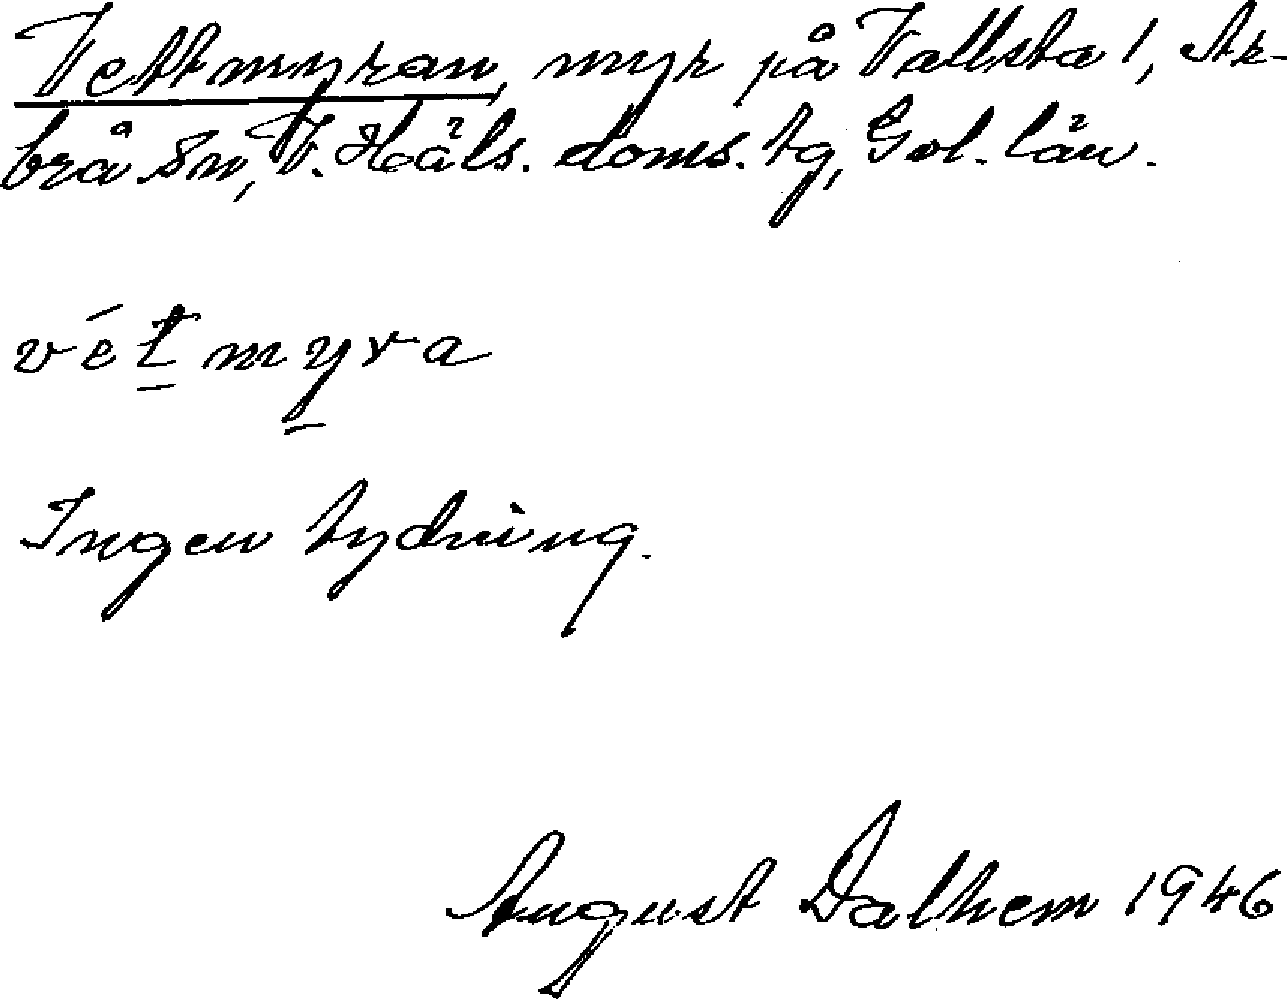 Vettmyran, myr på Vallsta 1, Ar-
brå sn, V. Häls. doms. tg, Gvl. län.
vétmyra
Ingen tydning.
August Dalhem 1946